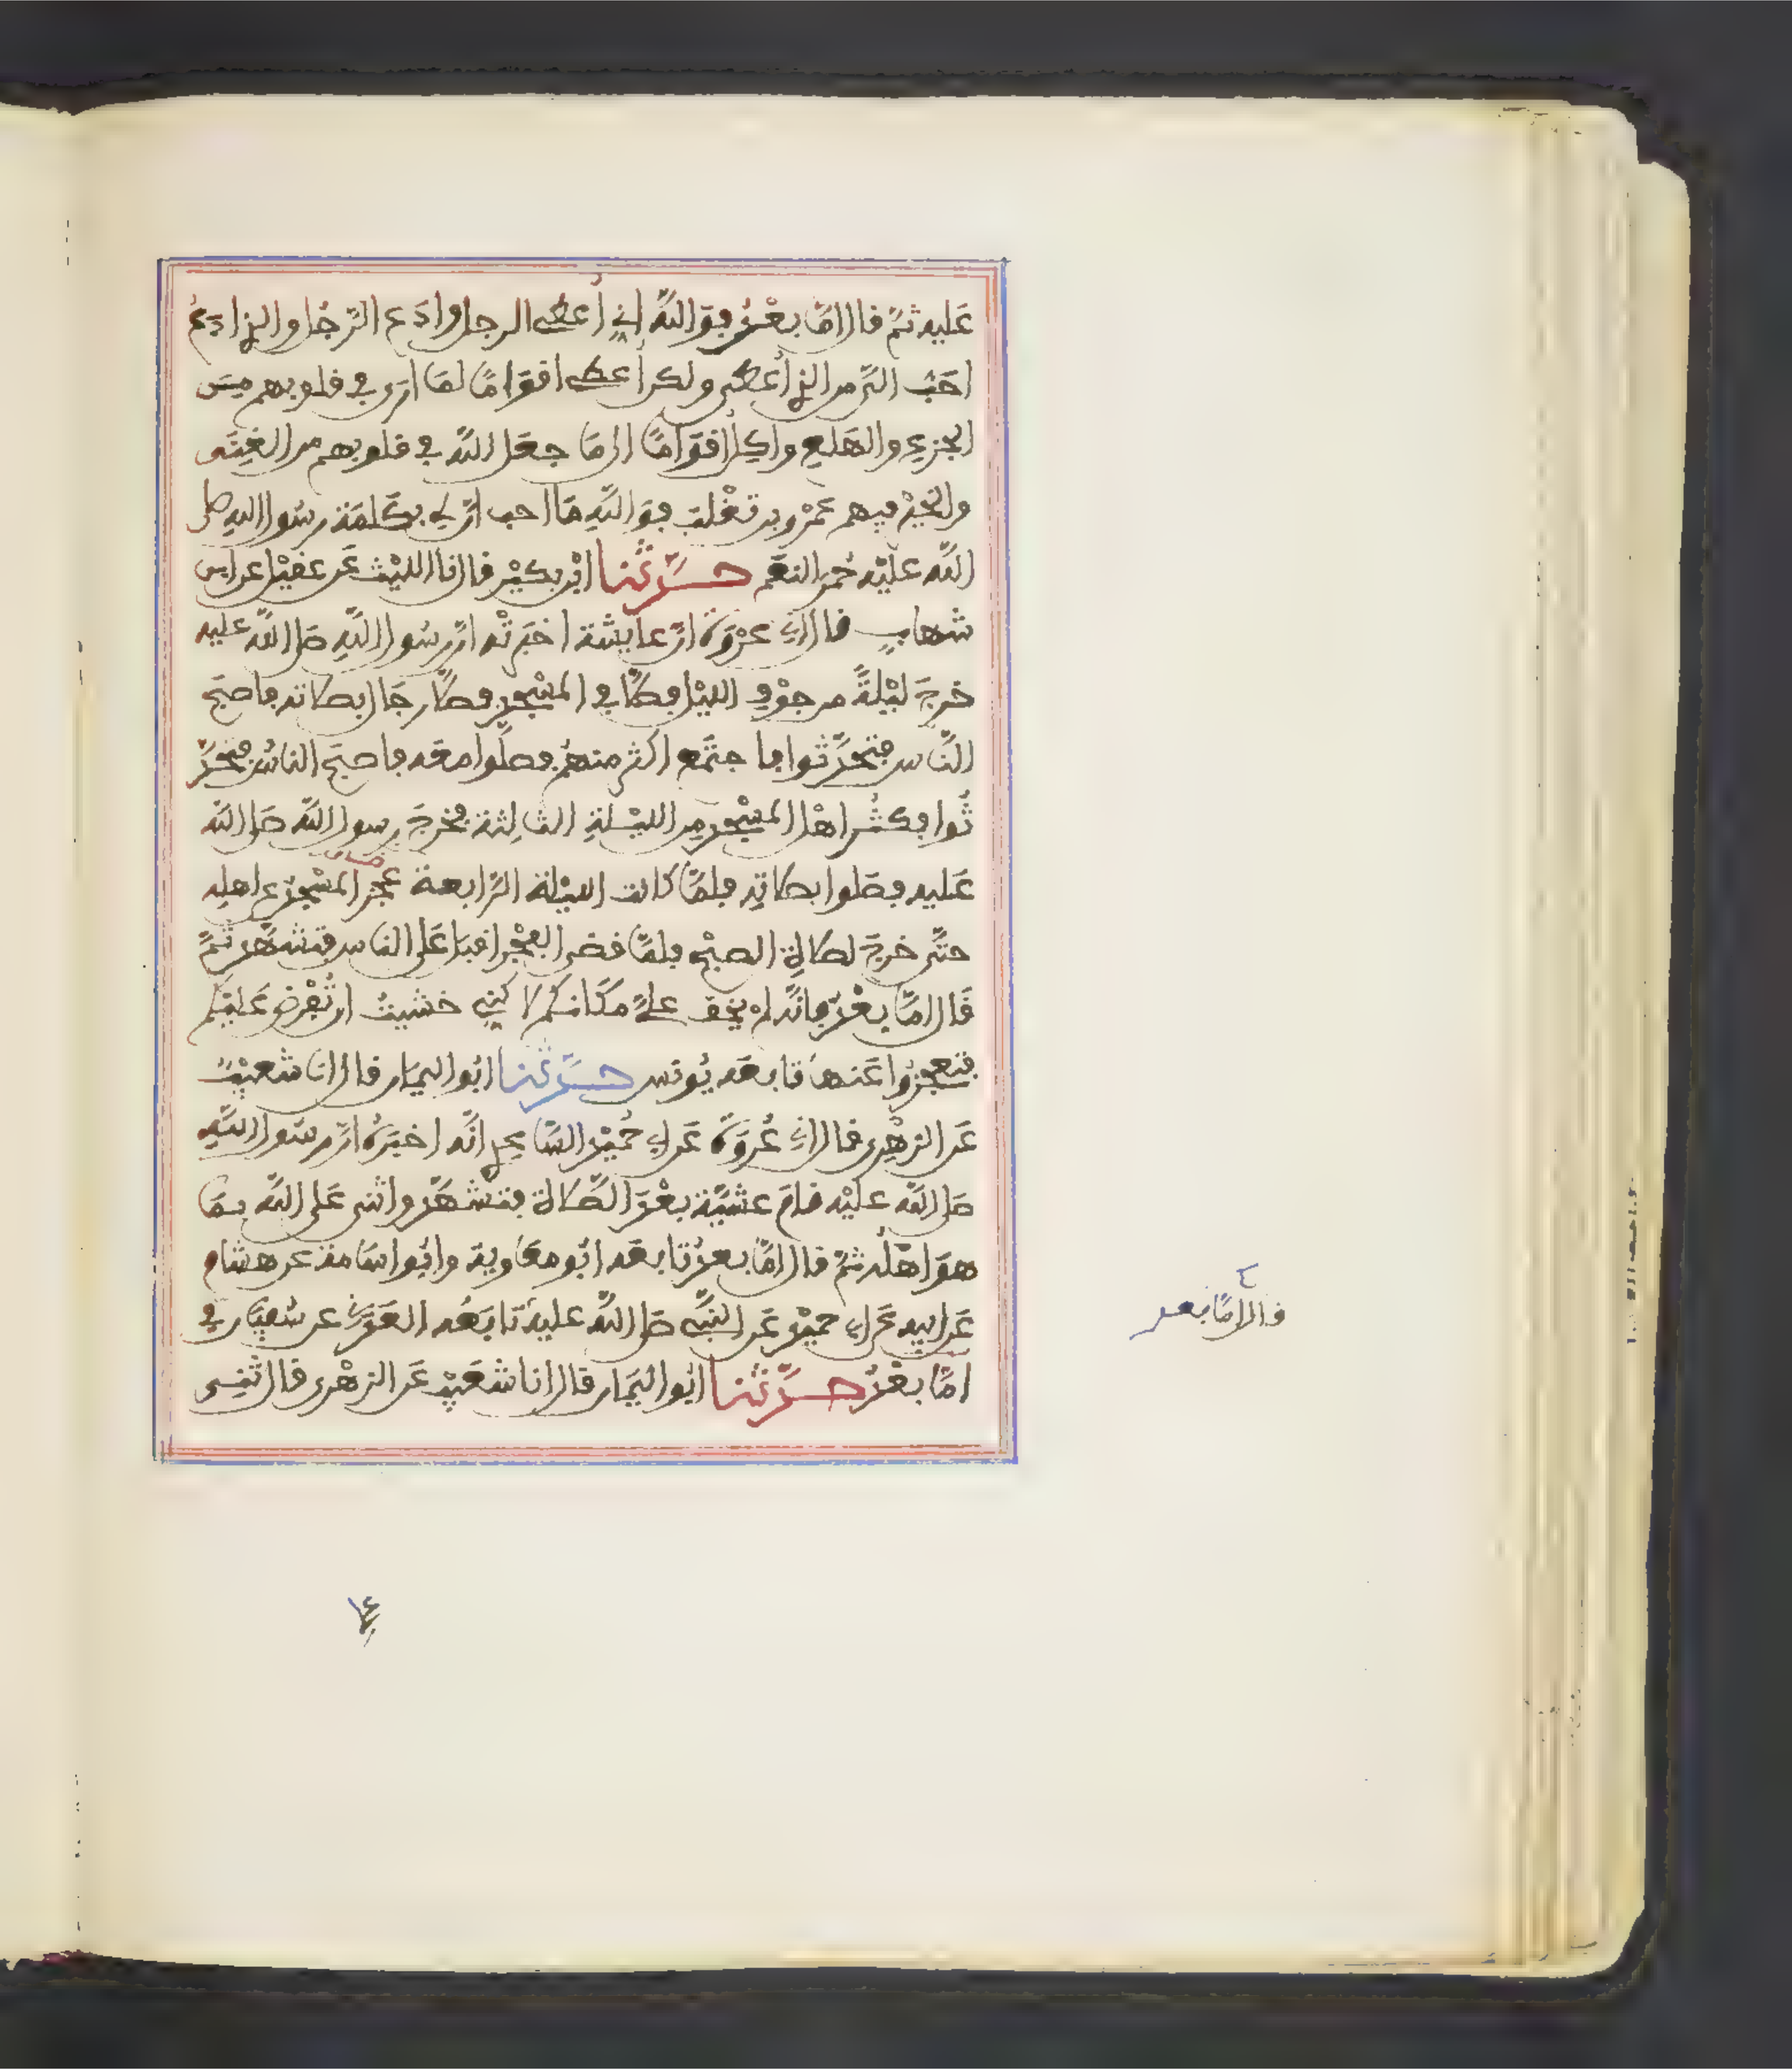 عَليه ثمّ قال امّا بعْدُ فوَاللهِ انّي أُعطي الرجل وادَع الرّجُل والذي ادَعُ
احَبُّ اليّ من الذي أُعطي ولكن أُعطي اقوَامًا لمَا ارَى في قلوبهم مِنَ
الجزع والهَلَع واكِلُ اقوَامًا الى مَا جعَل اللهُ في قلوبهم من الغِنَى
والخيْر فيهم عَمْرو بن تغْلبَ فوَاللهِ مَا احب انّ لي بكَلمَة رسُول الله صلى
اللهُ عليْه حُمرَ النعَم حَدَّثنا ابْن بكيْر قال انا الليْث عَن عقيْل عن ابن
شهابٍ قال اني عرْوَة انّ عايشة اخبَرتْه انّ رسُول اللهِ صَلى اللهُ عليه
خرجَ ليْلةً من جوْفِ الليْل فصَلّى في المسْجِد فصَلّى رجَال بصلاته فاصبَح
النّاس فتحَدَّثوا فاجتمَع اكثر منهُم فصلّوا معَه فاصبَح الناسُ فتحَدّ
ثُوا فكثُر اهْل المسْجد مِن الليْلةِ الثالِثة فخرجَ رسول الله صَلى الله
عَليه فصَلوا بصلاتِه فلمّا كانت الليْلة الرّابعة عجَز المسْجِدُ عن اهله
حتّى خرجَ لصلاةِ الصبْح فلمّا قضى الفجْر اقبَل عَلى الناس فتشهّد ثمّ
قَال امّا بعْدُ فانّه لم يخف عليّ مكَانكُم لاكنّي خشيتُ ان تُفْرض عَليْكم
فتعجزُوا عَنهَا تابعَه يُونس حَدَّثنا ابُو اليمَان قال انا شعيْبٌ
عَن الزهْرِي قال اني عُرْوَة عَن ابي حُميْد السّاعِدي انّه اخبَرَهُ انّ رسُول اللهِ
صَلى اللهُ عليْه قامَ عشيّة بعْدَ الصّلاة فتشهّد واثنى عَلى اللهِ بمَا
هوَ اهْلُه ثمّ قال امّا بعدُ تابعَه ابُو معَاوية وابُو اسَامة عن هشام
عَن ابيه عَن ابي حميْد عَن النبّي صَلى اللهُ عليْه تابَعَه العَدَني عن سُفيَان في
امّا بعْدُ حَدَّثنا ابُو اليَمَان قال انا شعَيْب عَن الزهْري قال ثني
قال امّا بعد